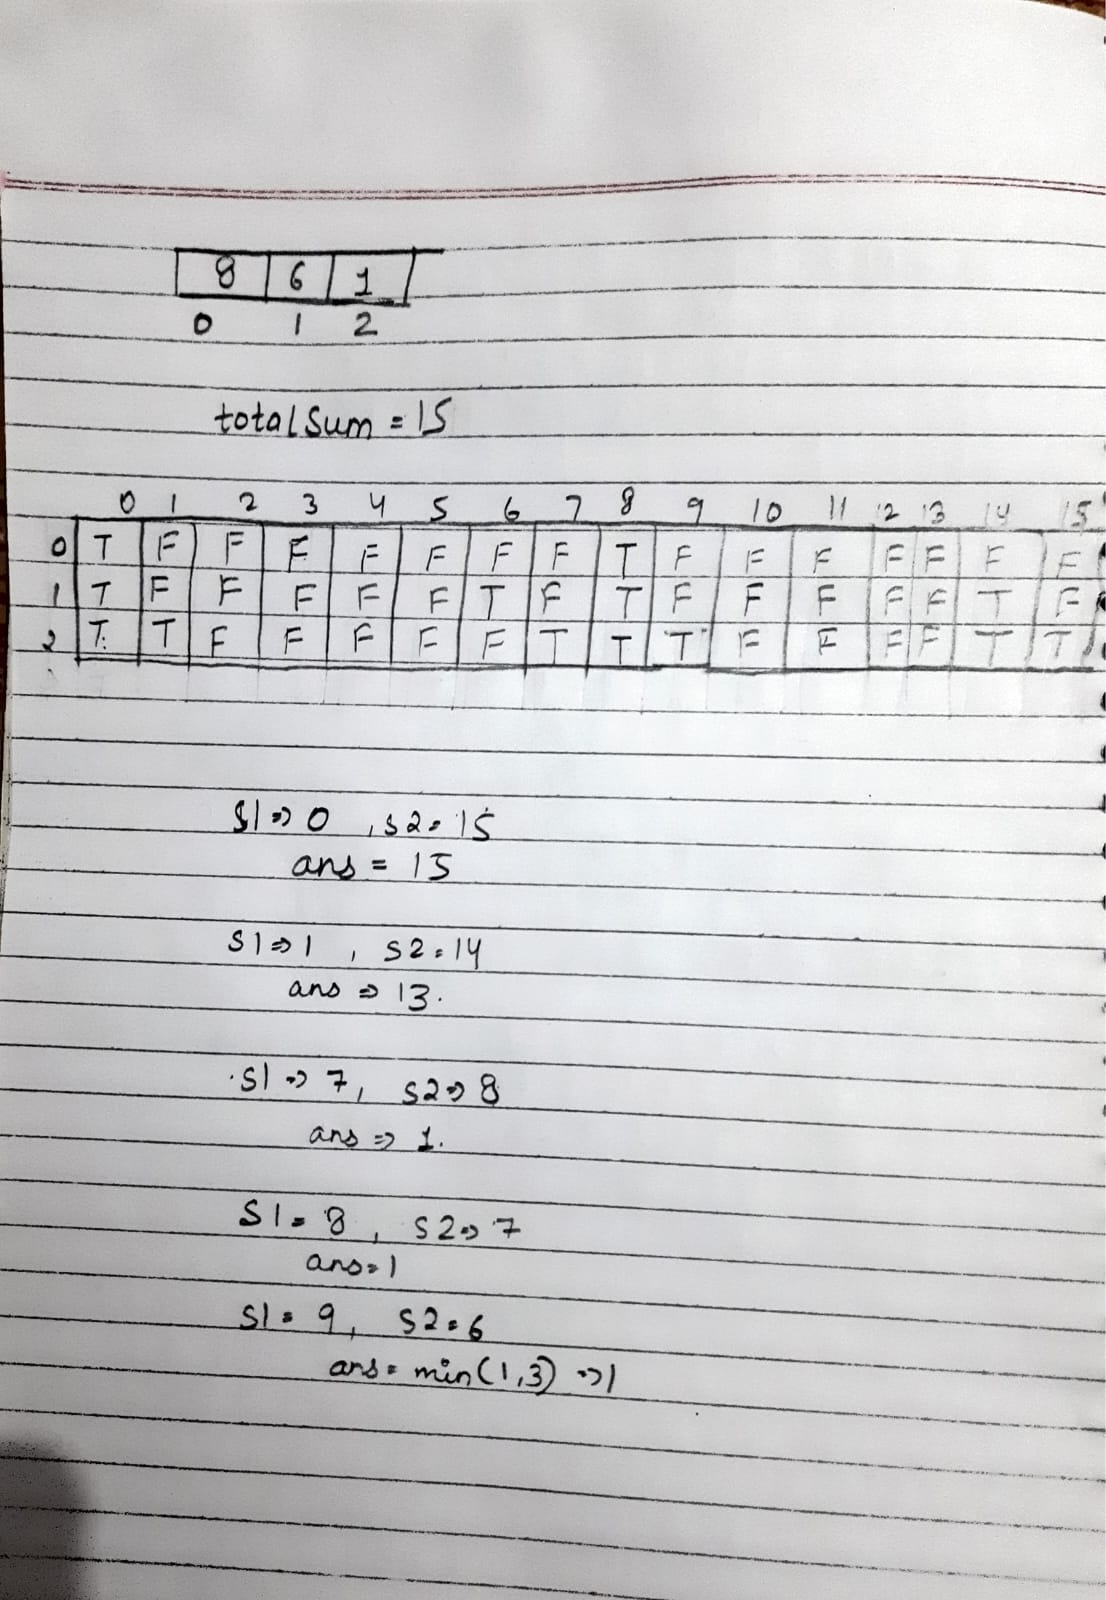 8 6 1
0 1 2
totalSum = 15
0 1 2 3 4 5 6 7 8 9 10 11 12 13 14 15
0 T F F F F F F F T F F F F F F F
1 T F F F F F T F T F F F F F T F
2 T T F F F F F T T T F F F F T T
S1⇒0 , S2=15
ans = 15
S1⇒1 , S2=14
ans ⇒ 13.
S1⇒7, S2⇒8
ans ⇒ 1.
S1=8, S2⇒7
ans=1
S1=9, S2=6
ans=min(1,3) ⇒1